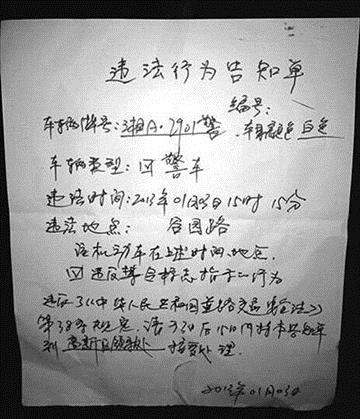 违法行为告知单
编号:
车辆牌号:湘A·2901警 车身颜色 白色
车辆类型:☑警车
违法时间:2013年01月03日15时15分
违法地点: 谷园路
该机动车在上述时间、地点,
☑违反禁令标志指示行为
违反了《中华人民共和国道路交通安全法》
第38条规定,请于3日后15日内持本告知单
到 接受处理.
2013年01月03日